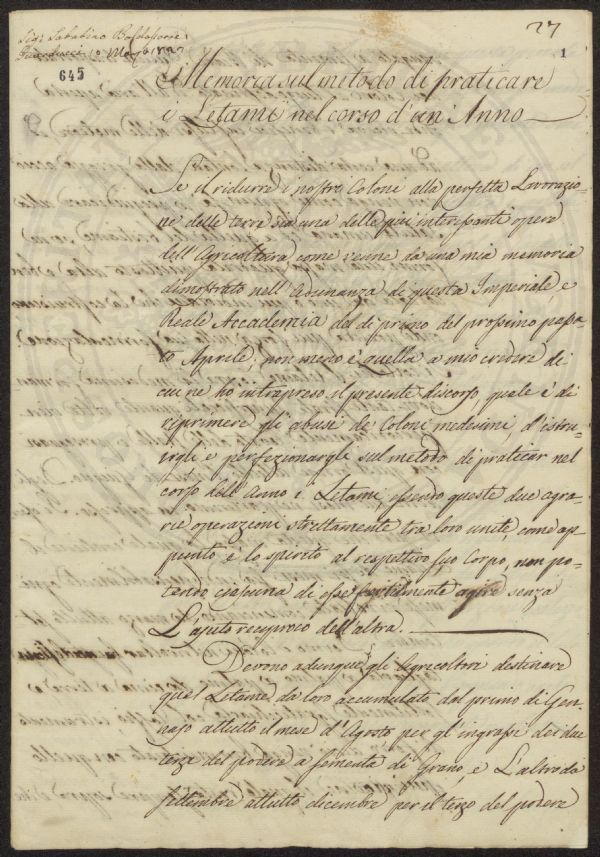 27
1
Sig. Sabatino Baldassarre
Guarducci 10 Maggio 1807
645
Memoria sul metodo di praticare
i Letami nel corso d'un'Anno
Se il ridurre i nostri Coloni alla perfetta Lavorazio-
ne delle terre sia una delle più interessanti opere
dell'Agricoltura, come venne da una mia memoria
dimostrato nell'Adunanza di questa Imperiale, e
Reale Accademia del di primo del prossimo pasa-
to Aprile; non meno è quella a mio credere di
cui ne ho intrapreso il presente discorso, quale è di
reprimere gli abusi de Coloni medesimi, d'istru-
irgli e perfezionargli sul metodo di praticar nel
corso dell'Anno i Letami, essendo queste due agra-
rie operazioni strettamente tra loro unite, come ap-
punto è lo spirito al respettivo suo Corpo, non po-
tendo ciascuna di esse fertilmente agire senza
L'ajuto reciproco dell'altra.
Devono adunque gli Agricoltori destinare
quel Letame da loro accumulato dal primo di Gen-
najo attutto il mese d'Agosto per gl'ingrassi dei due
terzi del podere a sementa di Grano, e L'altro da
settembre attutto dicembre per il terzo del podere